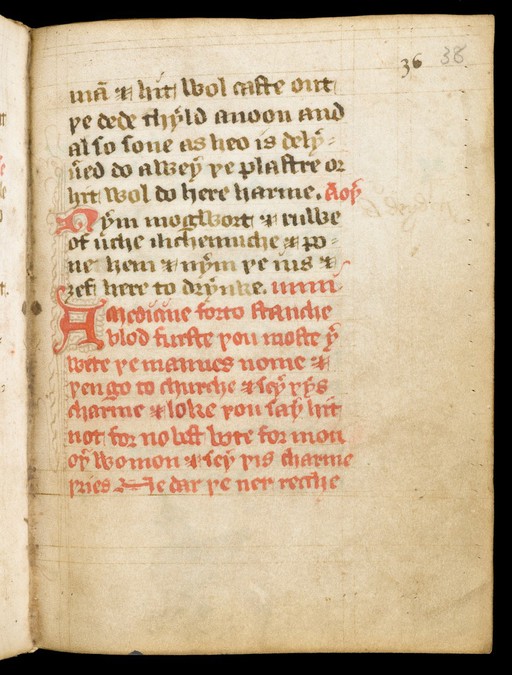 36 38
mā & hit wol caste out
þe dede chyld anoon and
al so sone as heo is dely-
ūed do awey þe plastre or
hit wol do here harme. Aoþ
Nym mogwort & ruwe
of uche ilichemuche & po-
ne hem & nym þe iris &
ȝef here to drynke.
A medicine forto stanche
blod furste þou moste y
wete þe mannes nome &
þen go to churche & sey þys
charme & loke þou say hit
not for no best bote for mon
oþ womon & sey þis charme
þries